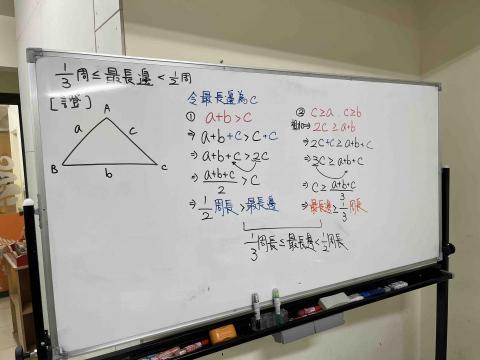 1/3周 ≤ 最長邊 < 1/2周
[證]
A
a
c
B
b
C
令最長邊為c
① a+b>c
⇒ a+b+c>c+c
⇒ a+b+c>2c
⇒ (a+b+c)/2 >c
⇒ 1/2周長>最長邊
② c≥a、c≥b
2c≥a+b
⇒ 2c+c≥a+b+c
⇒ 3c≥a+b+c
⇒ c≥ (a+b+c)/3
⇒ 最長邊≥ 1/3周長
1/3周長≤最長邊<1/2周長